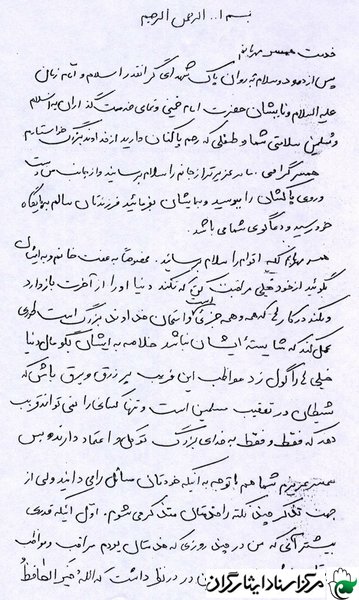 بسم ا.. الرحمن الرحیم
خدمت همسر مهربانم
پس از درود و سلام به روان پاک شهدای گرانقدر اسلام و امام زمان
علیه السلام و نایبشان حضرت امام خمینی و تمامی خدمت گذاران به اسلام
و مسلمین سلامتی شما و طفلی که رحم پاکتان دارید از خداوند بزرگ خواستارم
همسر گرامی مادر عزیزتر از جانم را سلام برسانید و از جانب من دست
و روی پاکشان را ببوسید و به ایشان بفرمائید فرزندتان سالم به پایگاه
خود رسید و دعاگوی شما می باشد.
همسر مهربانم کلیه اقوام را سلام برسانید. مخصوصاً به عفت خانم و به ایشان
بگوئید از خود خیلی مراقبت کن که نکند دنیا او را از آخرت باز دارد
و نکند در کارهائی که همه و همه جزئی از امتحان خداوند بزرگ است طوری
عمل کند که شایسته ایشان نباشد خلاصه به ایشان بگو مال دنیا
خیلی ها را گول زد مواظب این فریب پر زرق و برق باش که
شیطان در تعقیب مسلمین است و تنها کسانی را نمی تواند فریب
دهد که فقط و فقط به خدای بزرگ توکل و اعتماد دارند و بس
همسر عزیزم شما هم با توجه به اینکه خودتان مسائل را می دانید ولی از
جهت تذکر چند نکته را خدمتتان متذکر می شوم. اول اینکه قدری
بیشتر از آنی که من در چند روزی که خدمتتان بودم مراقب و مواظب
در نظر داشت که الله خیر الحافظ
مرکز اسناد ایثارگران